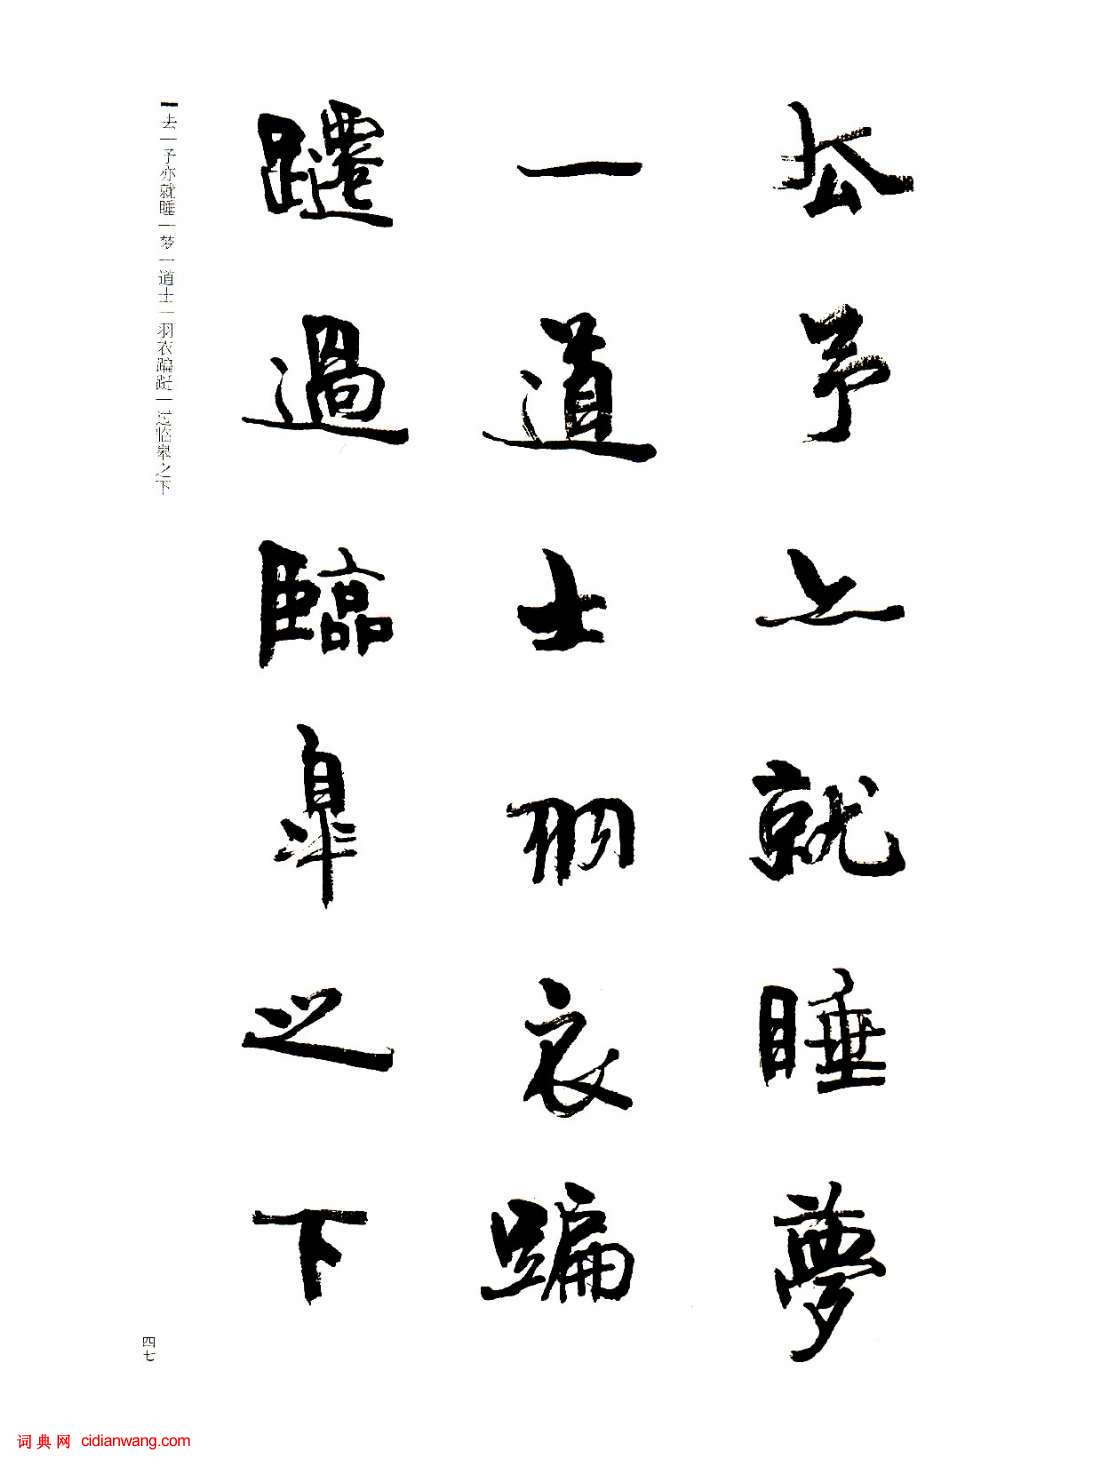 去予亦就睡夢
一道士羽衣蹁
躚過臨皋之下
去|予亦就睡|梦一道士|羽衣蹁跹|过临皋之下
四七
词典网 cidianwang.com